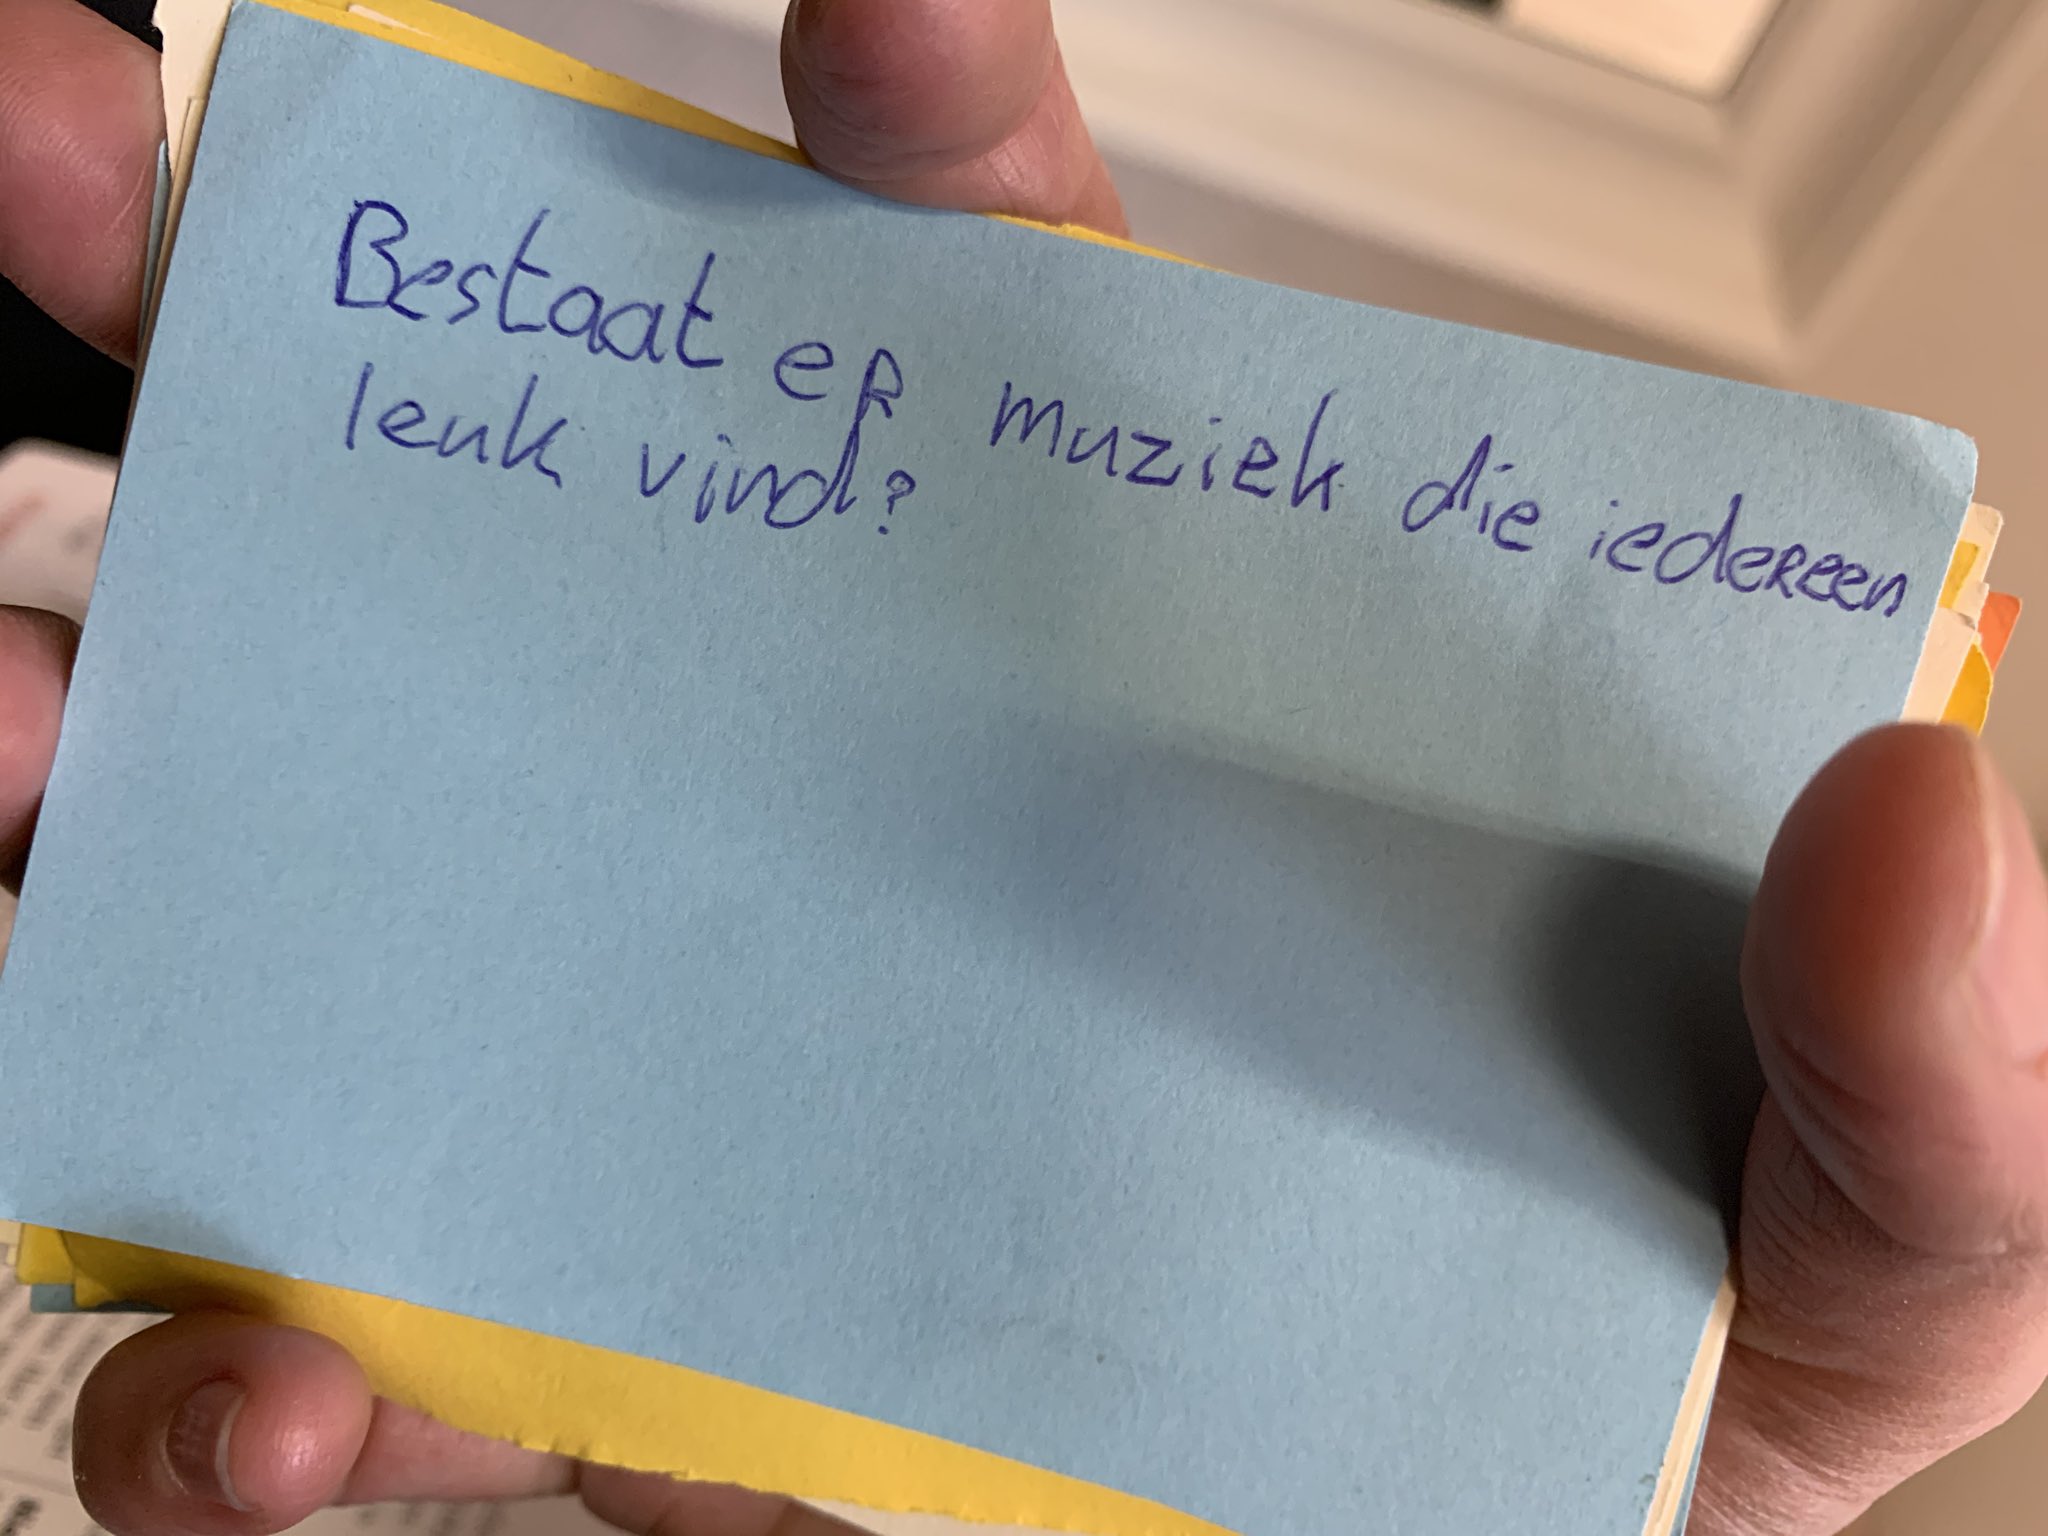 Bestaat er muziek die iedereen
leuk vind?